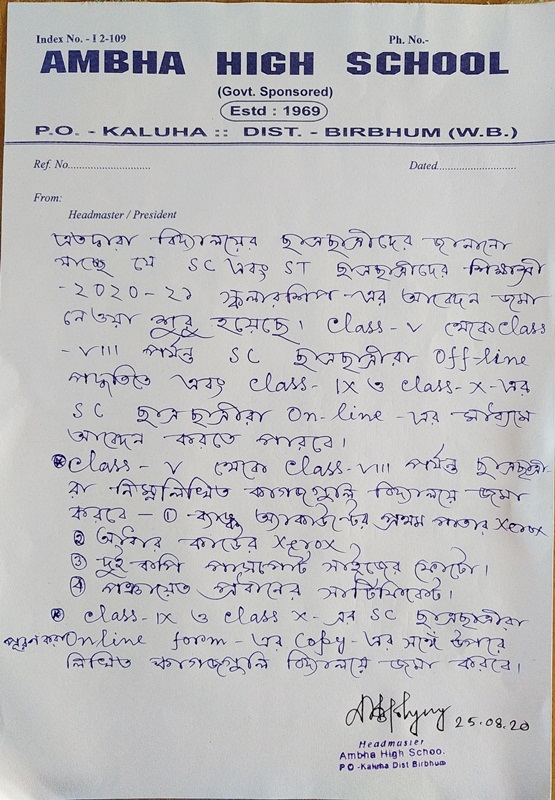 Index No. - I 2-109
Ph. No.-
AMBHA HIGH SCHOOL
(Govt. Sponsored)
Estd : 1969
P.O. - KALUHA :: DIST. - BIRBHUM (W.B.)
Ref. No............................
Dated...........................
From:
Headmaster / President
এতদ্বারা বিদ্যালয়ের ছাত্রছাত্রীদের জানানো
যাচ্ছে যে SC এবং ST ছাত্রছাত্রীদের শিক্ষাশ্রী
-2020-21 স্কলারশিপ -এর আবেদন জমা
নেওয়া শুরু হয়েছে। Class-V থেকে Class
-VIII পর্যন্ত SC ছাত্রছাত্রীরা Off-line
পদ্ধতিতে এবং Class-IX ও Class-X-এর
SC ছাত্রছাত্রীরা On-line -এর মাধ্যমে
আবেদন করতে পারবে।
Class-V থেকে Class-VIII পর্যন্ত ছাত্রছাত্রী-
রা নিম্নলিখিত কাগজগুলি বিদ্যালয়ে জমা
করবে - ① ব্যাঙ্ক অ্যাকাউন্টের প্রথম পাতার Xerox
② আধার কার্ডের Xerox
③ দুই কপি পাসপোর্ট সাইজের ফোটো।
④ পঞ্চায়েত প্রধানের সার্টিফিকেট।
Class-IX ও Class X-এর SC ছাত্রছাত্রীরা
পূরণ করা Online form -এর Copy -এর সঙ্গে উপরে
লিখিত কাগজগুলি বিদ্যালয়ে জমা করবে।
25.08.20
Headmaster
Ambha High School
P.O -Kaluha Dist Birbhum